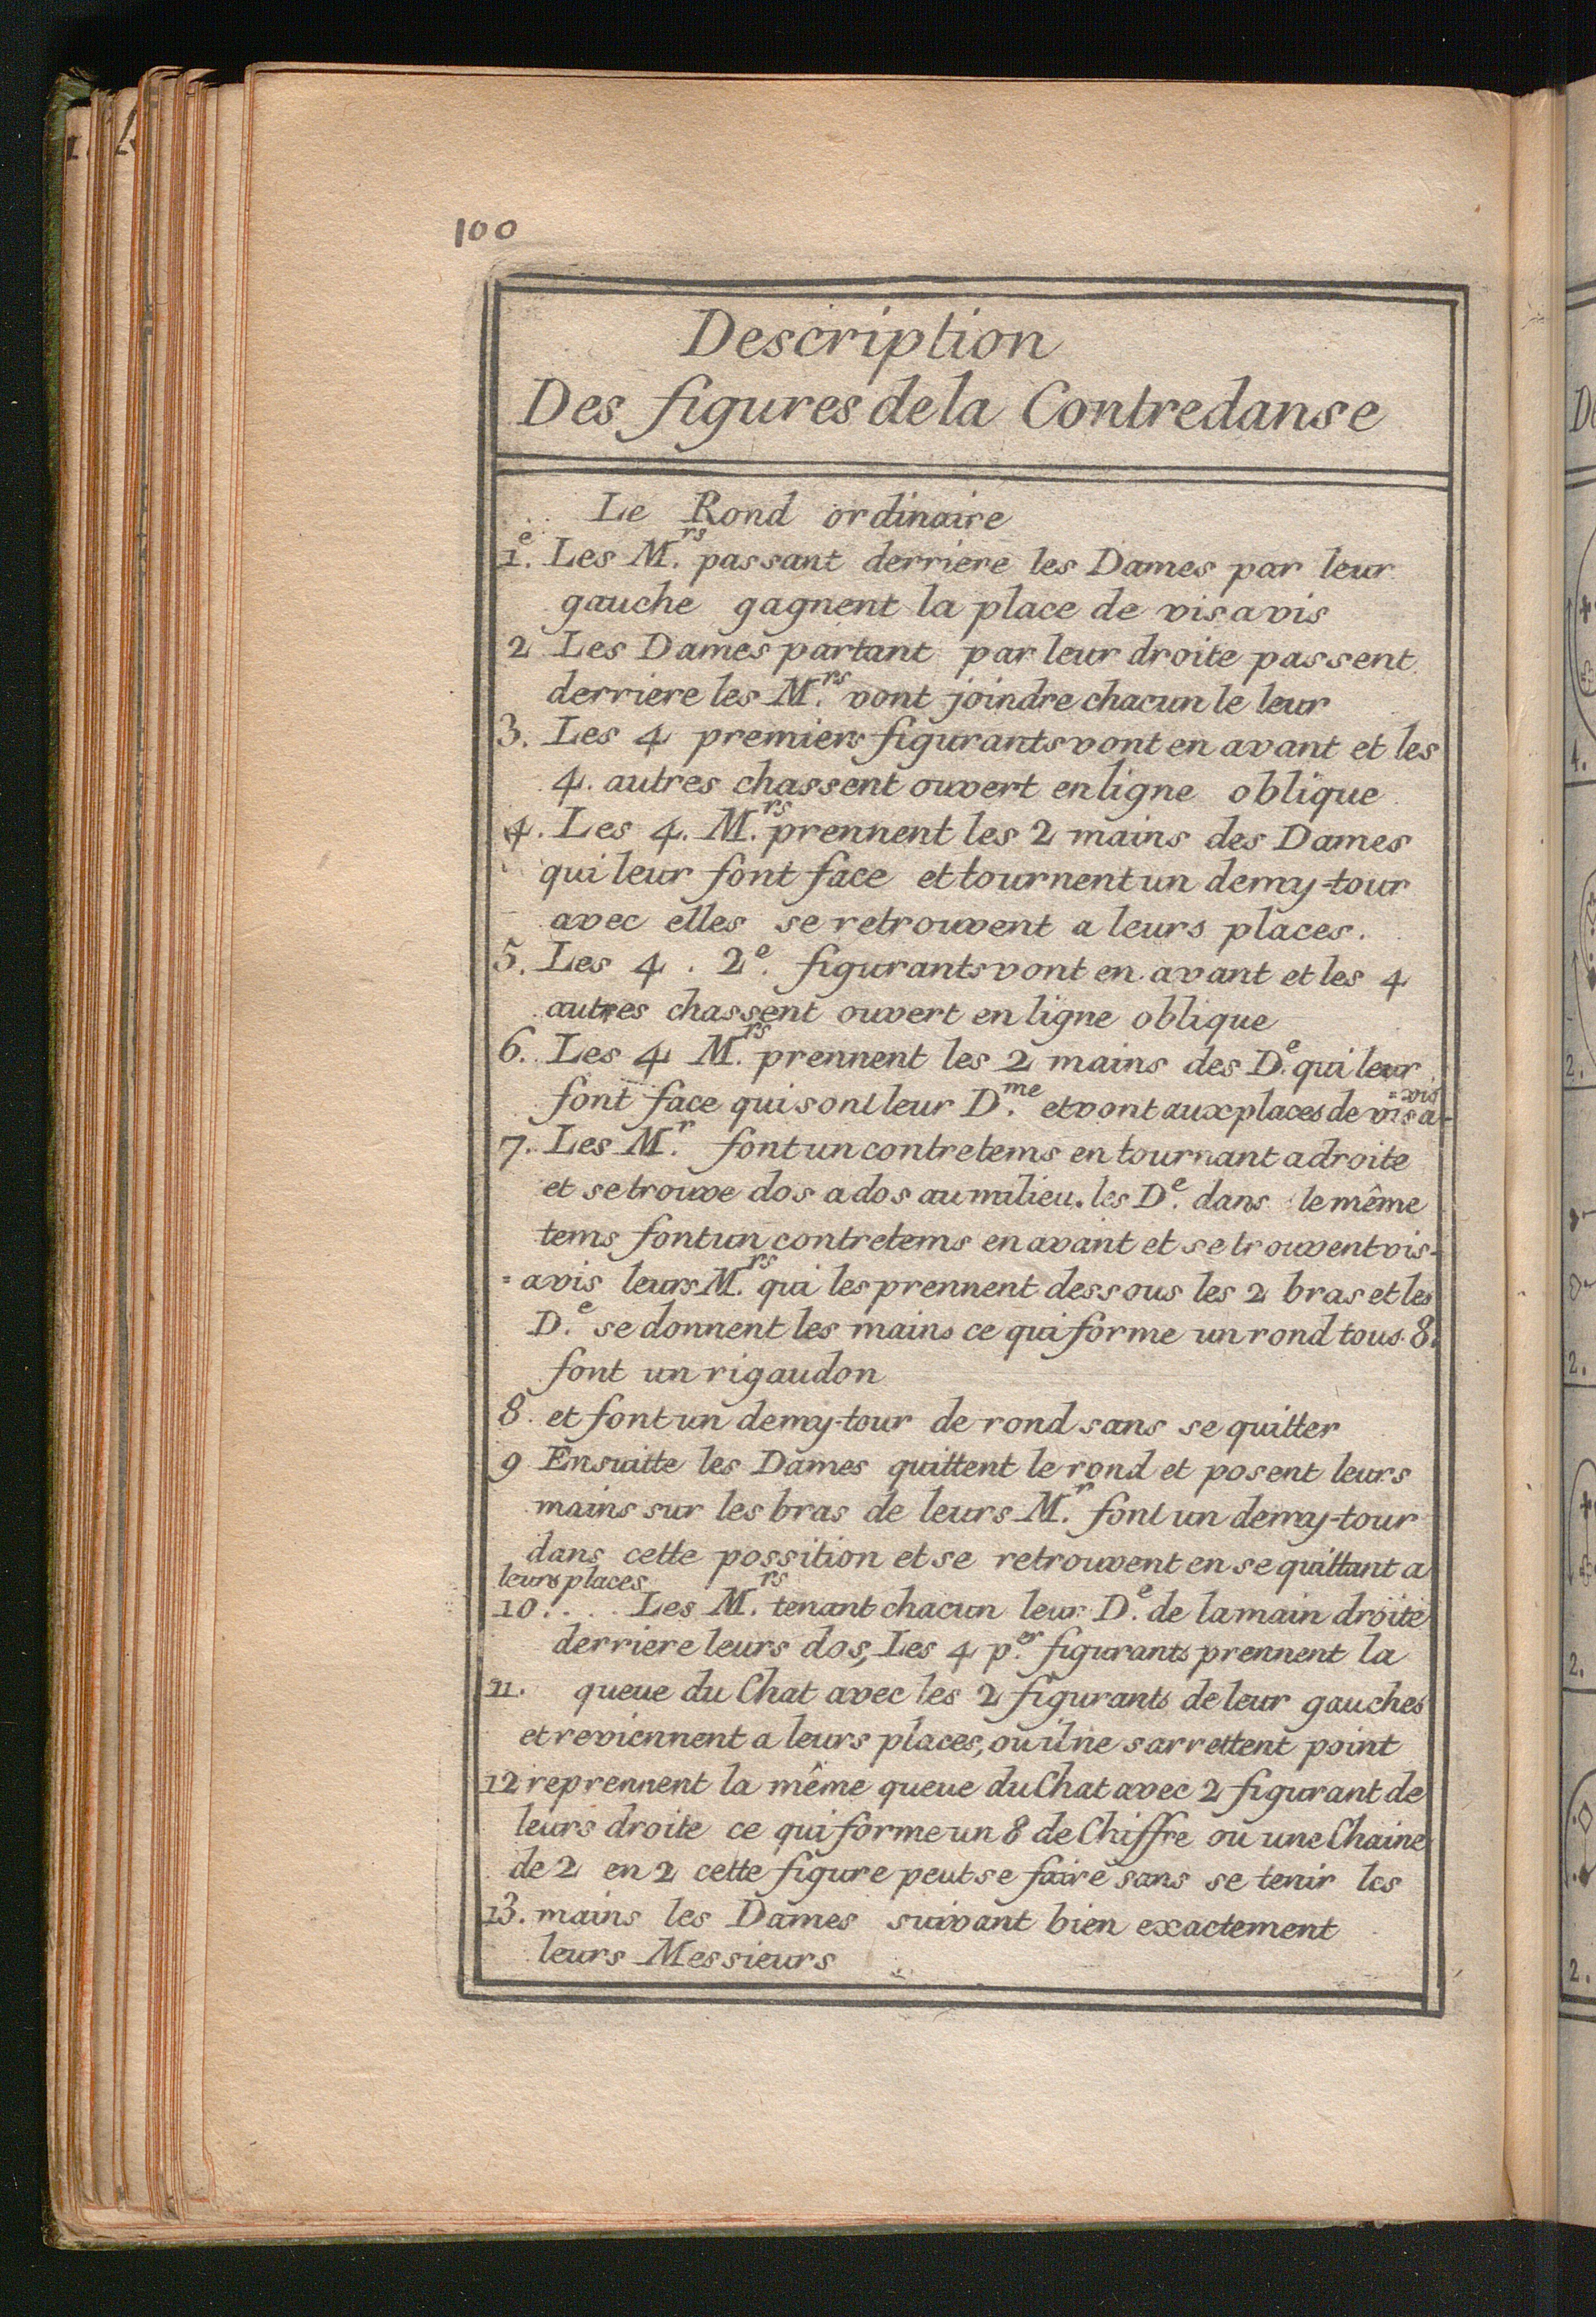 100
Description
Des figures de la Contredanse
Le Rond ordinaire
1.e Les M.rs passant derriere les Dames par leur
gauche gagnent la place de vis a vis
2 Les Dames partant par leur droite passent
derriere les M.rs vont joindre chacun le leur
3. Les 4 premiers figurants vont en avant et les
4. autres chassent ouvert en ligne oblique
4. Les 4. M.rs prennent les 2 mains des Dames
qui leur font face et tournent un demy-tour
avec elles se retrouvent a leurs places.
5. Les 4. 2.e figurants vont en avant et les 4
autres chassent ouvert en ligne oblique
6. Les 4 M.rs prennent les 2 mains des D.e qui leur
font face qui sont leur D.me et vont aux places de vis a-
=vis
7. Les M.r font un contretems en tournant a droite
et se trouve dos a dos au milieu. les D.e dans le même
tems font un contretems en avant et se trouvent vis-
=avis leurs M.rs qui les prennent dessous les 2 bras et les
D.e se donnent les mains ce qui forme un rond tous 8.
font un rigaudon
8. et font un demy-tour de rond sans se quitter
9 Ensuitte les Dames quittent le rond et posent leurs
mains sur les bras de leurs M.r font un demy-tour
dans cette possition et se retrouvent en se quittant a
leurs places
10. . . . Les M.rs tenant chacun leur D.e de la main droite
derriere leurs dos, Les 4 p.er figurants prennent la
11. queue du Chat avec les 2 figurants de leur gauches
et reviennent a leurs places, ou il ne sarrettent point
12 reprennent la même queue du Chat avec 2 figurant de
leurs droite ce qui forme un 8 de Chiffre ou une Chaine
de 2 en 2 cette figure peut se faire sans se tenir les
13. mains les Dames suivant bien exactement
leurs Messieurs